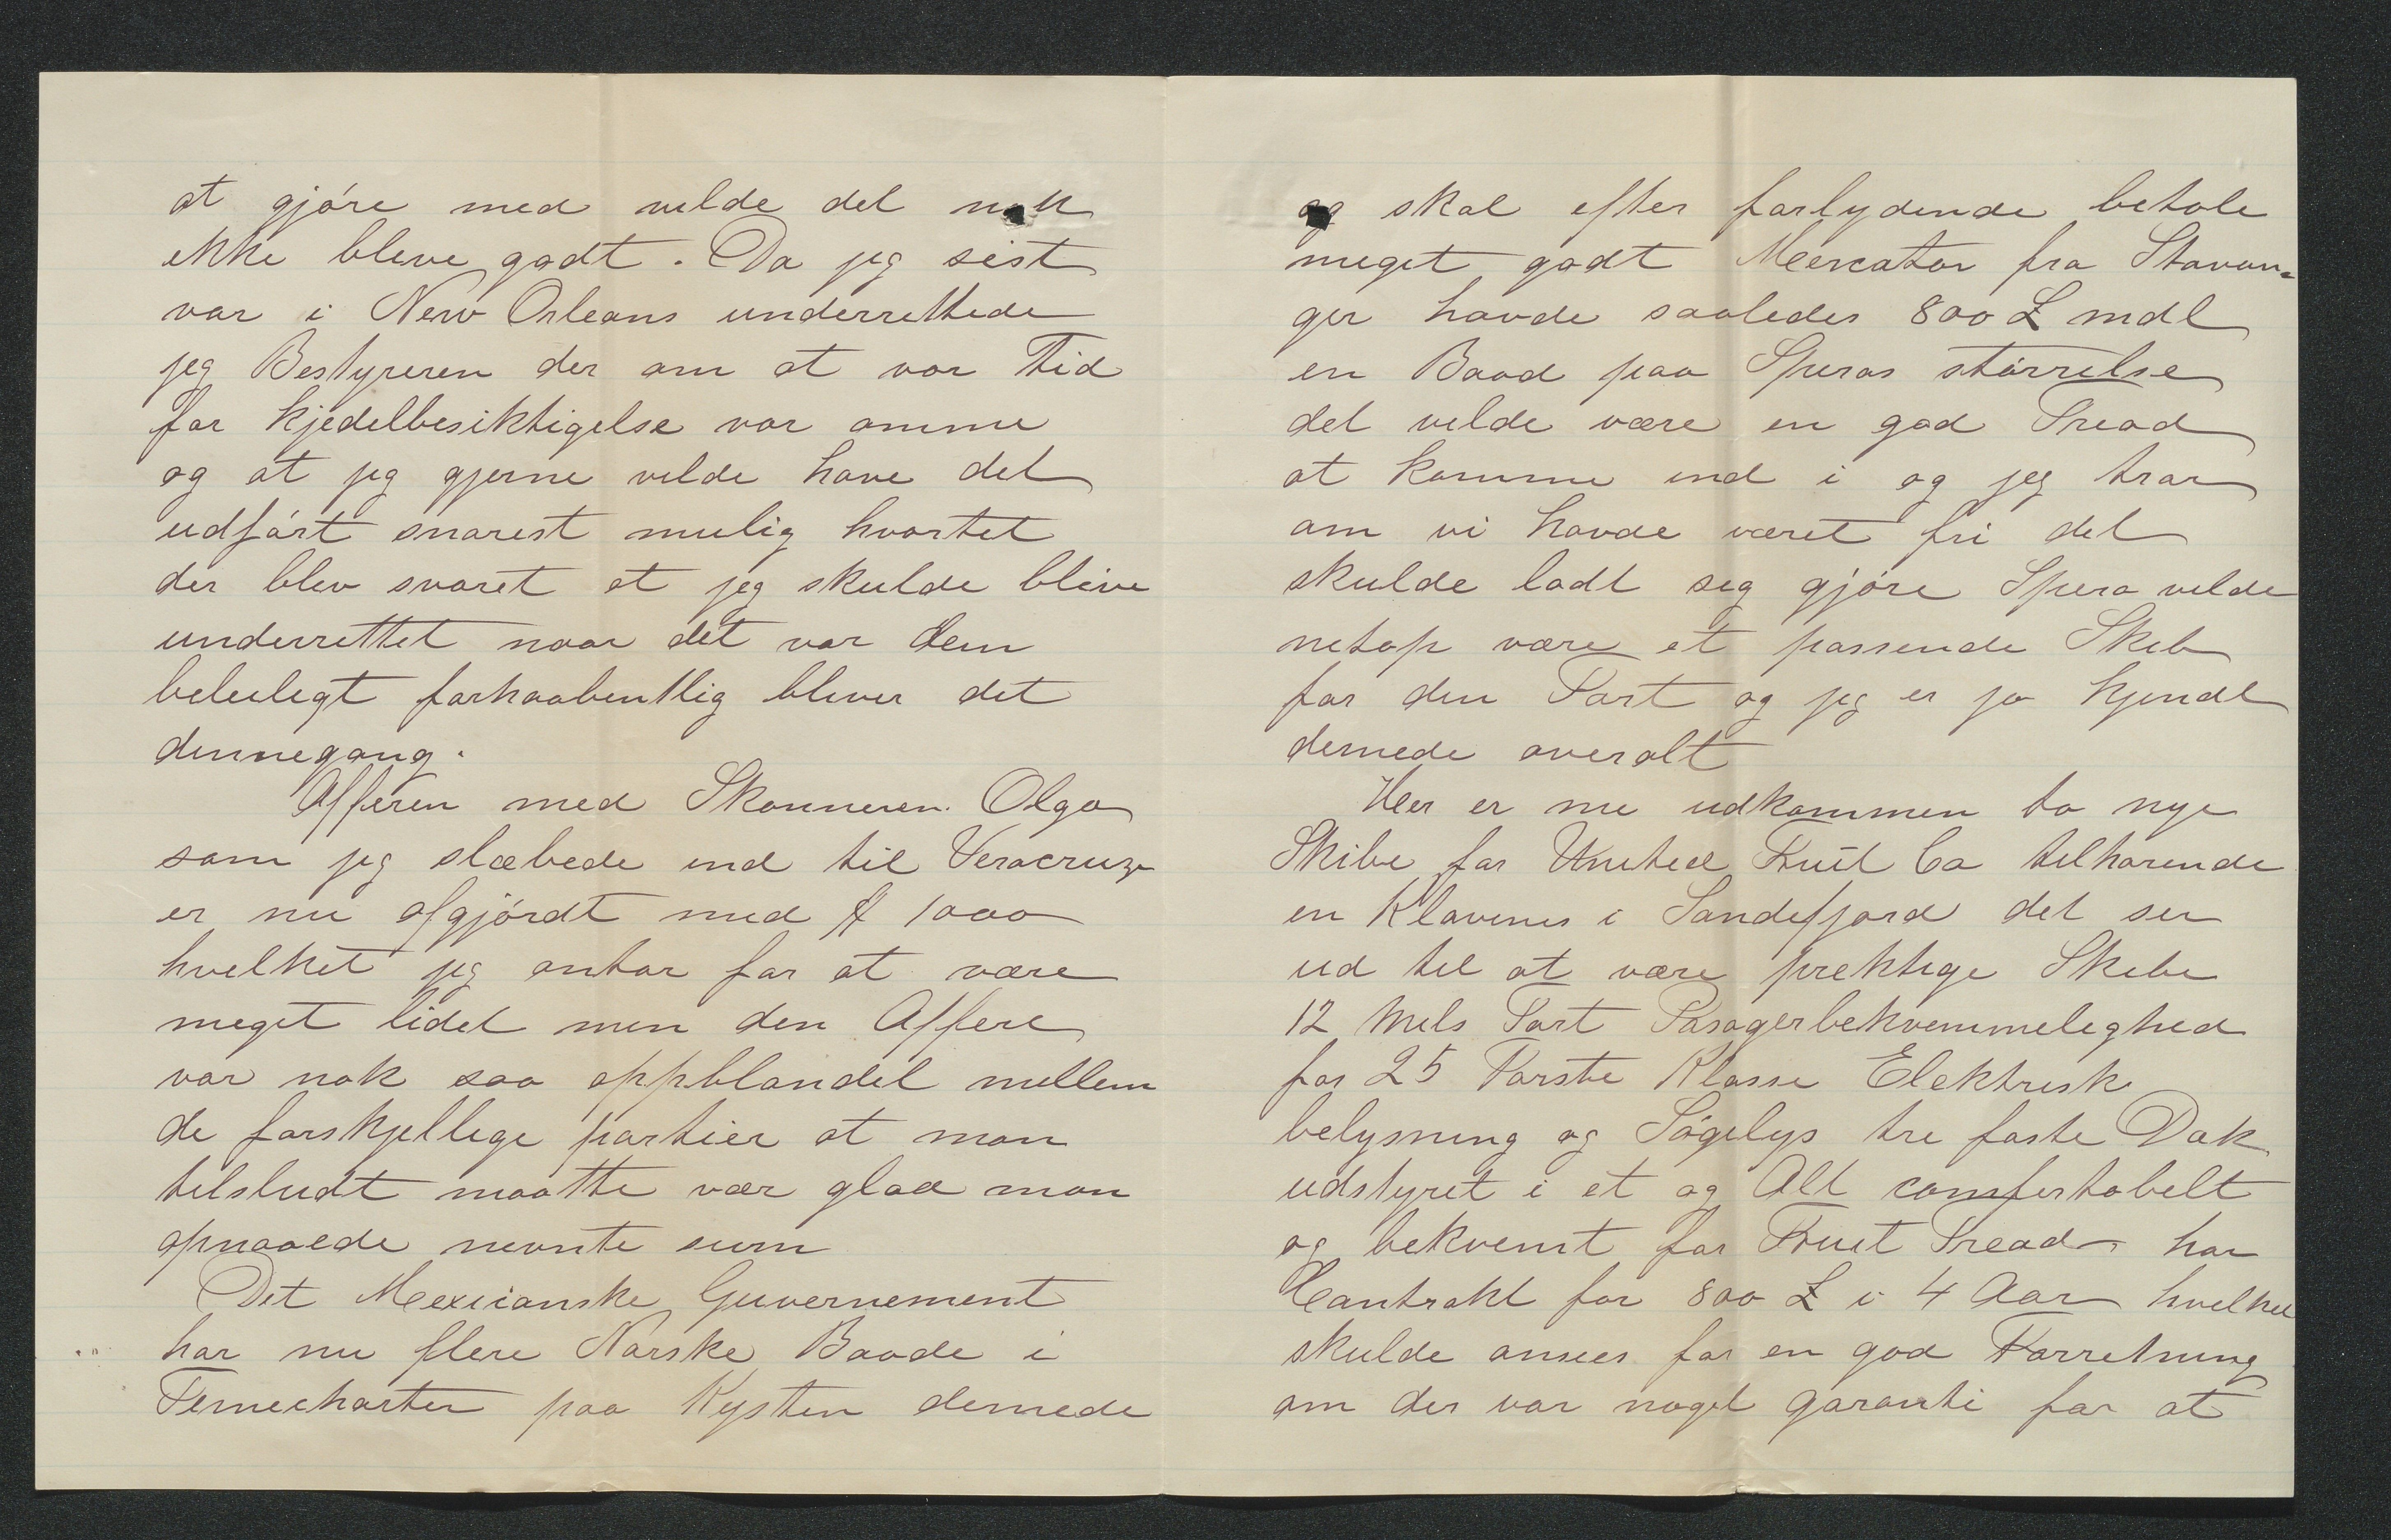 at gjøre med vilde det nok
ikke bleve godt. Da jeg sist
var i New Orleans underrettede
jeg Bestyreren der om at vor Tid
for kjedelbesiktigelse var omme
og at jeg gjerne vilde have det
udført snarest mulig hvortet
der blev svaret at jeg skulde blive
underrettet naar det var dem
beleilegt forhaabentlig bliver det
dennegang.
Afferen med Skonneren Olga
som jeg slæbede ind til Veracruz
er nu afgjórdt med $ 1000
hvelket jeg antar for at være
meget lidet men den Affere
var nok saa oppblandet mellem
de forskjellige partier at man
tilsludt maatte vær glad man
opnaaede nevnte sum
Det Mexicanske Guvernement
har nu flere Norske Baade i
Timecharter paa Kysten dernede
og skal efter forlydende betale
meget godt Mercator fra Stavan-
ger havde saaledes 800 £ mdl
en Baad paa Speras størrelse
det vilde være en god Tread
at komme ind i og jeg tror
om vi havde været fri det
skulde ladt seg gjøre Spera vilde
netop være et passende Skib
for den Fart og jeg er jo kjendt
dernede overalt
Her er nu udkommen to nye
Skibe for United Fruit Co tilhorende
en Klavenes i Sandefjord det ser
ud til at være prektige Skibe
12 Mils Fart Pasagerbekvemmeleghed
for 25 Forste Klasse Elektrisk
belysning og Søgelys tre faste Dæk
udstyret i et og Alt comfortabelt
og bekvemt for Fruit Tread har
Contrakt for 800 £ i 4 Aar hvelket
skulde ansees for en god Forretning
om der var noget garanti for at